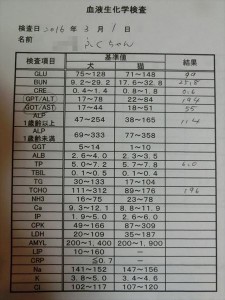 血液生化学検査
検査日 2016年 3月 1日
名前 ふくちゃん
検査項目 基準値 結果
犬 猫
GLU 75~128 71~148 99
BUN 9.2~29.2 17.6~32.8
CRE 0.4~1.4 0.8~1.8 0.6
GPT/ALT 17~78 22~84 194
GOT/AST 17~44 18~51 55
ALP 1歳以上 47~254 38~165 114
ALP 1歳未満 69~333 77~358
GGT 5~14 1~10
ALB 2.6~4.0 2.3~3.5
TP 5.0~7.2 5.7~7.8 6.0
TBIL 0.1~0.5 0.1~0.4
TG 30~133 17~104
TCHO 111~312 89~176 196
NH3 16~75 23~78
Ca 9.3~12.1 8.8~11.9
IP 1.9~5.0 2.6~6.0
CPK 49~166 87~309
LDH 20~109 35~187
AMYL 200~1,400 200~1,900
LIP 10~160 ー
CRP ≦0.7 ー
Na 141~152 147~156
K 3.8~5.0 3.4~4.6
Cl 102~117 107~120